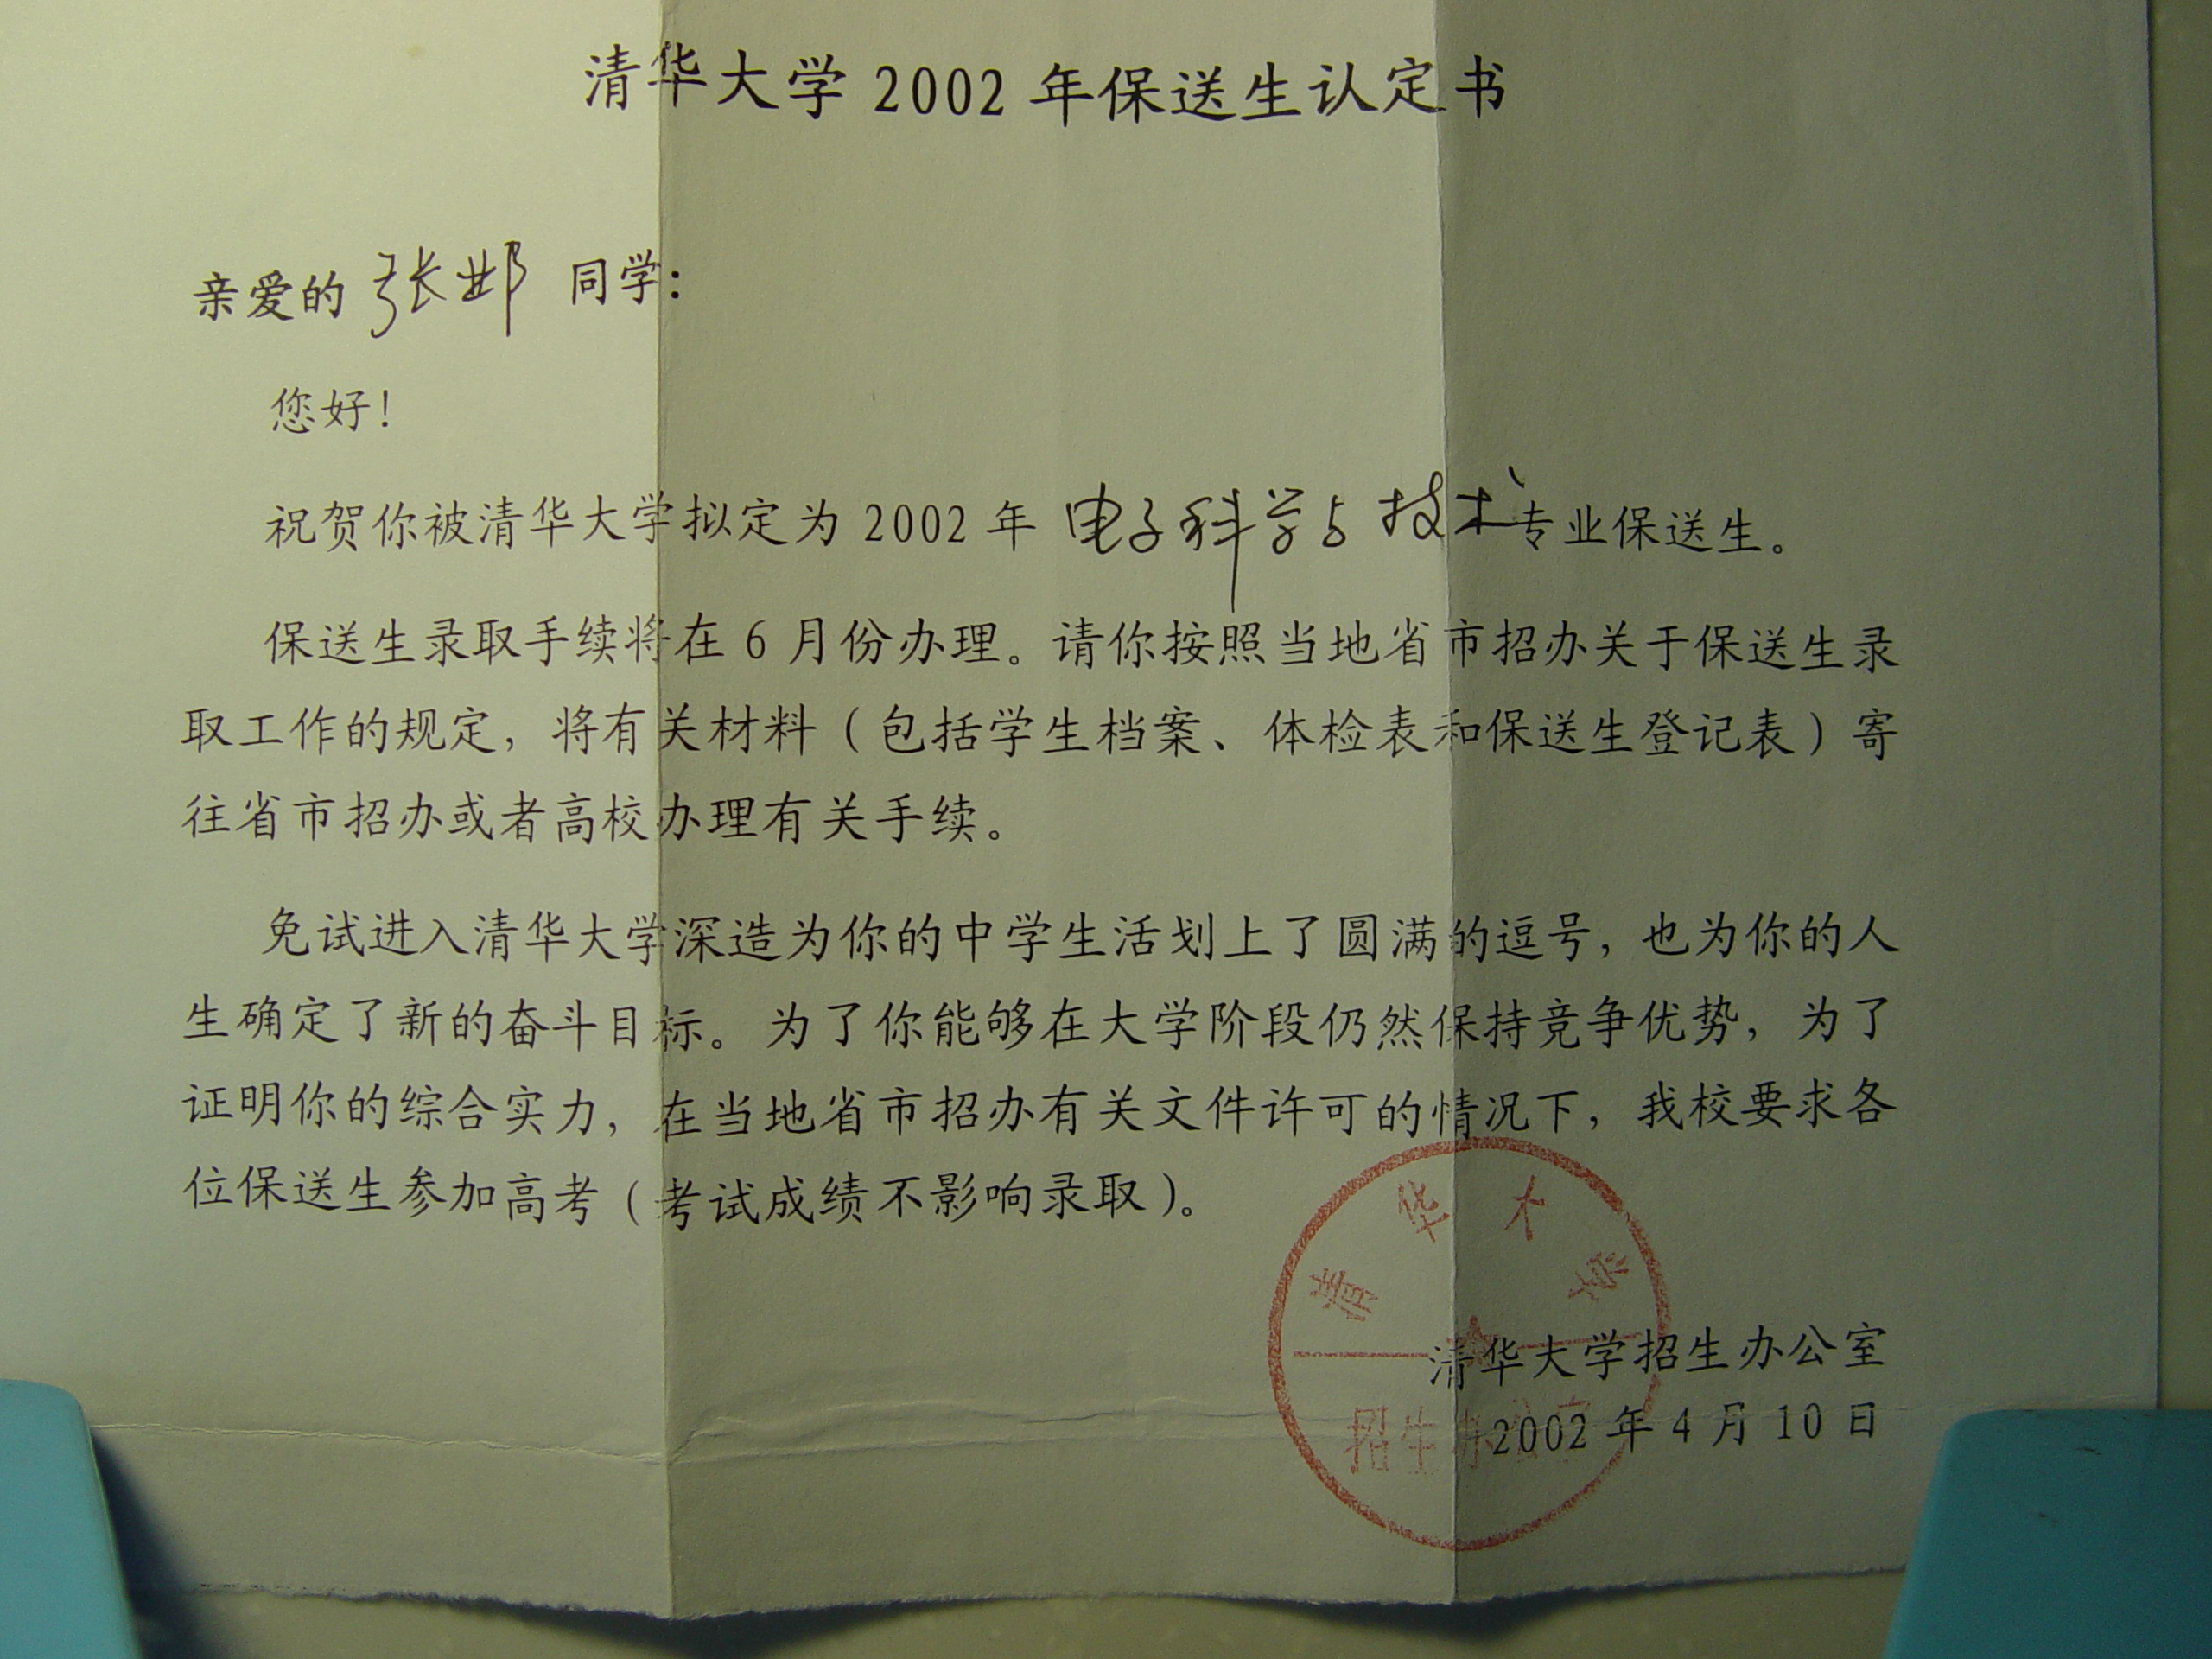 清华大学 2002 年保送生认定书
亲爱的 张邺 同学：
您好！
祝贺你被清华大学拟定为 2002 年 电子科学与技术专业保送生。
保送生录取手续将在 6 月份办理。请你按照当地省市招办关于保送生录
取工作的规定，将有关材料（包括学生档案、体检表和保送生登记表）寄
往省市招办或者高校办理有关手续。
免试进入清华大学深造为你的中学生活划上了圆满的逗号，也为你的人
生确定了新的奋斗目标。为了你能够在大学阶段仍然保持竞争优势，为了
证明你的综合实力，在当地省市招办有关文件许可的情况下，我校要求各
位保送生参加高考（考试成绩不影响录取）。
清华大学
清华大学招生办公室
招生办
2002 年 4 月 10 日